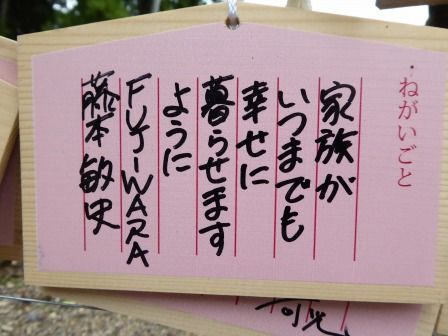 ねがいごと
家族が
いつまでも
幸せに
暮らせます
ように
FUJIWARA
藤本敏史